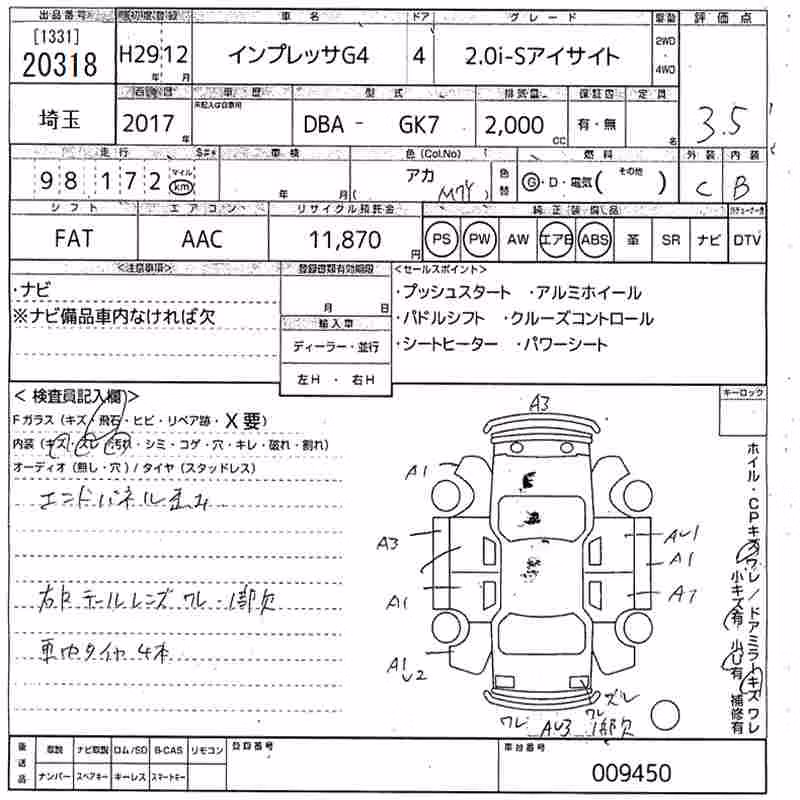 出品番号 初度登録 車名 ドア グレード 駆動 評価点
[1331]
20318 H29年 12月 インプレッサG4 4 2.0i-Sアイサイト 2WD・4WD 3.5
車歴 型式 排気量 保証書 定員
埼玉 2017年 未記入は自家用 DBA - GK7 2,000cc 有・無 名
走行 車検 色(Col.No) 燃料 外装 内装
98172 マイル km 年 月 アカ ( M7Y ) 色替 G・D・電気( その他 ) C B
シフト エアコン リサイクル預託金 純正装備品
FAT AAC 11,870円 PS PW AW エアB ABS 革 SR ナビ DTV
<注意事項> 登録書類有効期限 <セールスポイント>
・ナビ ・プッシュスタート ・アルミホイール
※ナビ備品車内なければ欠 月 日 ・パドルシフト ・クルーズコントロール
輸入車 ・シートヒーター ・パワーシート
ディーラー・並行
左H ・ 右H
<検査員記入欄> キーロック
Fガラス(キズ・飛石・ヒビ・リペア跡・X要)
内装(キズ・スレ・汚れ・シミ・コゲ・穴・キレ・破れ・割れ)
オーディオ(無し・穴)/タイヤ(スタッドレス)
エンドパネル歪み
右Rテールレンズ ワレ・1部欠
車内タイヤ4本
A3
A1
A3 AU1
A1
A1 A1
A1 U2
ズレ
ワレ AU3 ワレ 1部欠
ホイル・CPキズワレ/ドアミラーキズワレ
小キズ有 小U有 補修有
後送品 取説 ナビ取説 ロム/SD B-CAS リモコン 登録番号 車台番号
ナンバー スペアキー キーレス スマートキー 009450